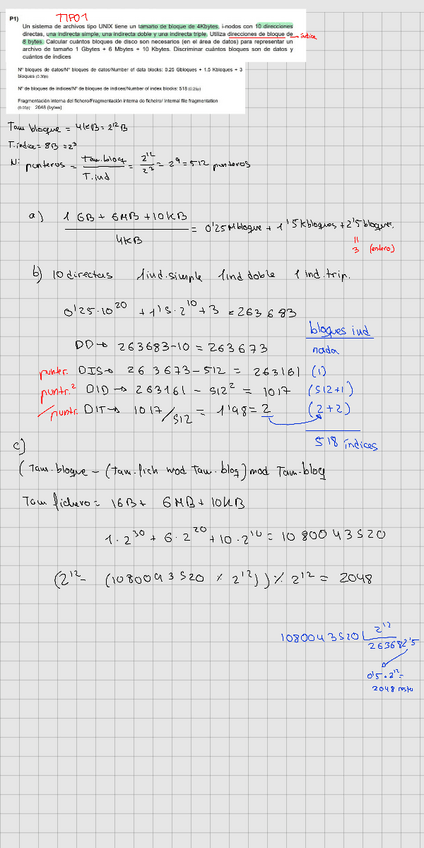 TIPO 1
P1)
Un sistema de archivos tipo UNIX tiene un tamaño de bloque de 4Kbytes, i-nodos con 10 direcciones
directas, una indirecta simple, una indirecta doble y una indirecta triple. Utiliza direcciones de bloque de → índice
8 bytes. Calcular cuántos bloques de disco son necesarios (en el área de datos) para representar un
archivo de tamaño 1 Gbytes + 6 Mbytes + 10 Kbytes. Discriminar cuántos bloques son de datos y
cuántos de índices.
Nº bloques de datos/Nº bloques de datos/Number of data blocks: 0.25 Gbloques + 1.5 Kbloques + 3
bloques
Nº de bloques de índices/Nº de bloques de índices/Number of index blocks: 518
Fragmentación interna del fichero/Fragmentación interna do ficheiro/ Internal file fragmentation
2048 (bytes)
Tam bloque = 4KB = 2^12 B
T.indice = 8B = 2^3
Nº punteros = Tam.bloq / T.ind = 2^12 / 2^3 = 2^9 = 512 punteros
a) 1 GB + 6MB + 10KB / 4KB = 0'25 Mbloque + 1'5 Kbloques + 2'5 bloques.
11
3 (entero)
b) 10 directas 1 ind.simple 1 ind doble 1 ind.trip.
0'25·10^20 + 1'5·2^10 + 3 = 263683
bloques ind
DD → 263683-10 = 263673 nada
puntr. DIS → 263673-512 = 263161 (1)
puntr.^2 DID → 263161 - 512^2 = 1017 (512+1)
/puntr. DIT → 1017/512 = 1'98 = 2 (2+2)
518 índices
c)
(Tam.bloque - (Tam.fich mod Tam.bloq) mod Tam-bloq
Tam fichero = 1GB + 6MB + 10KB
1·2^30 + 6·2^20 + 10·2^10 = 1080043520
(2^12 - (1080043520 % 2^12)) % 2^12 = 2048
1080043520 | 2^12
263682'5
0'5·2^12 =
2048 resto